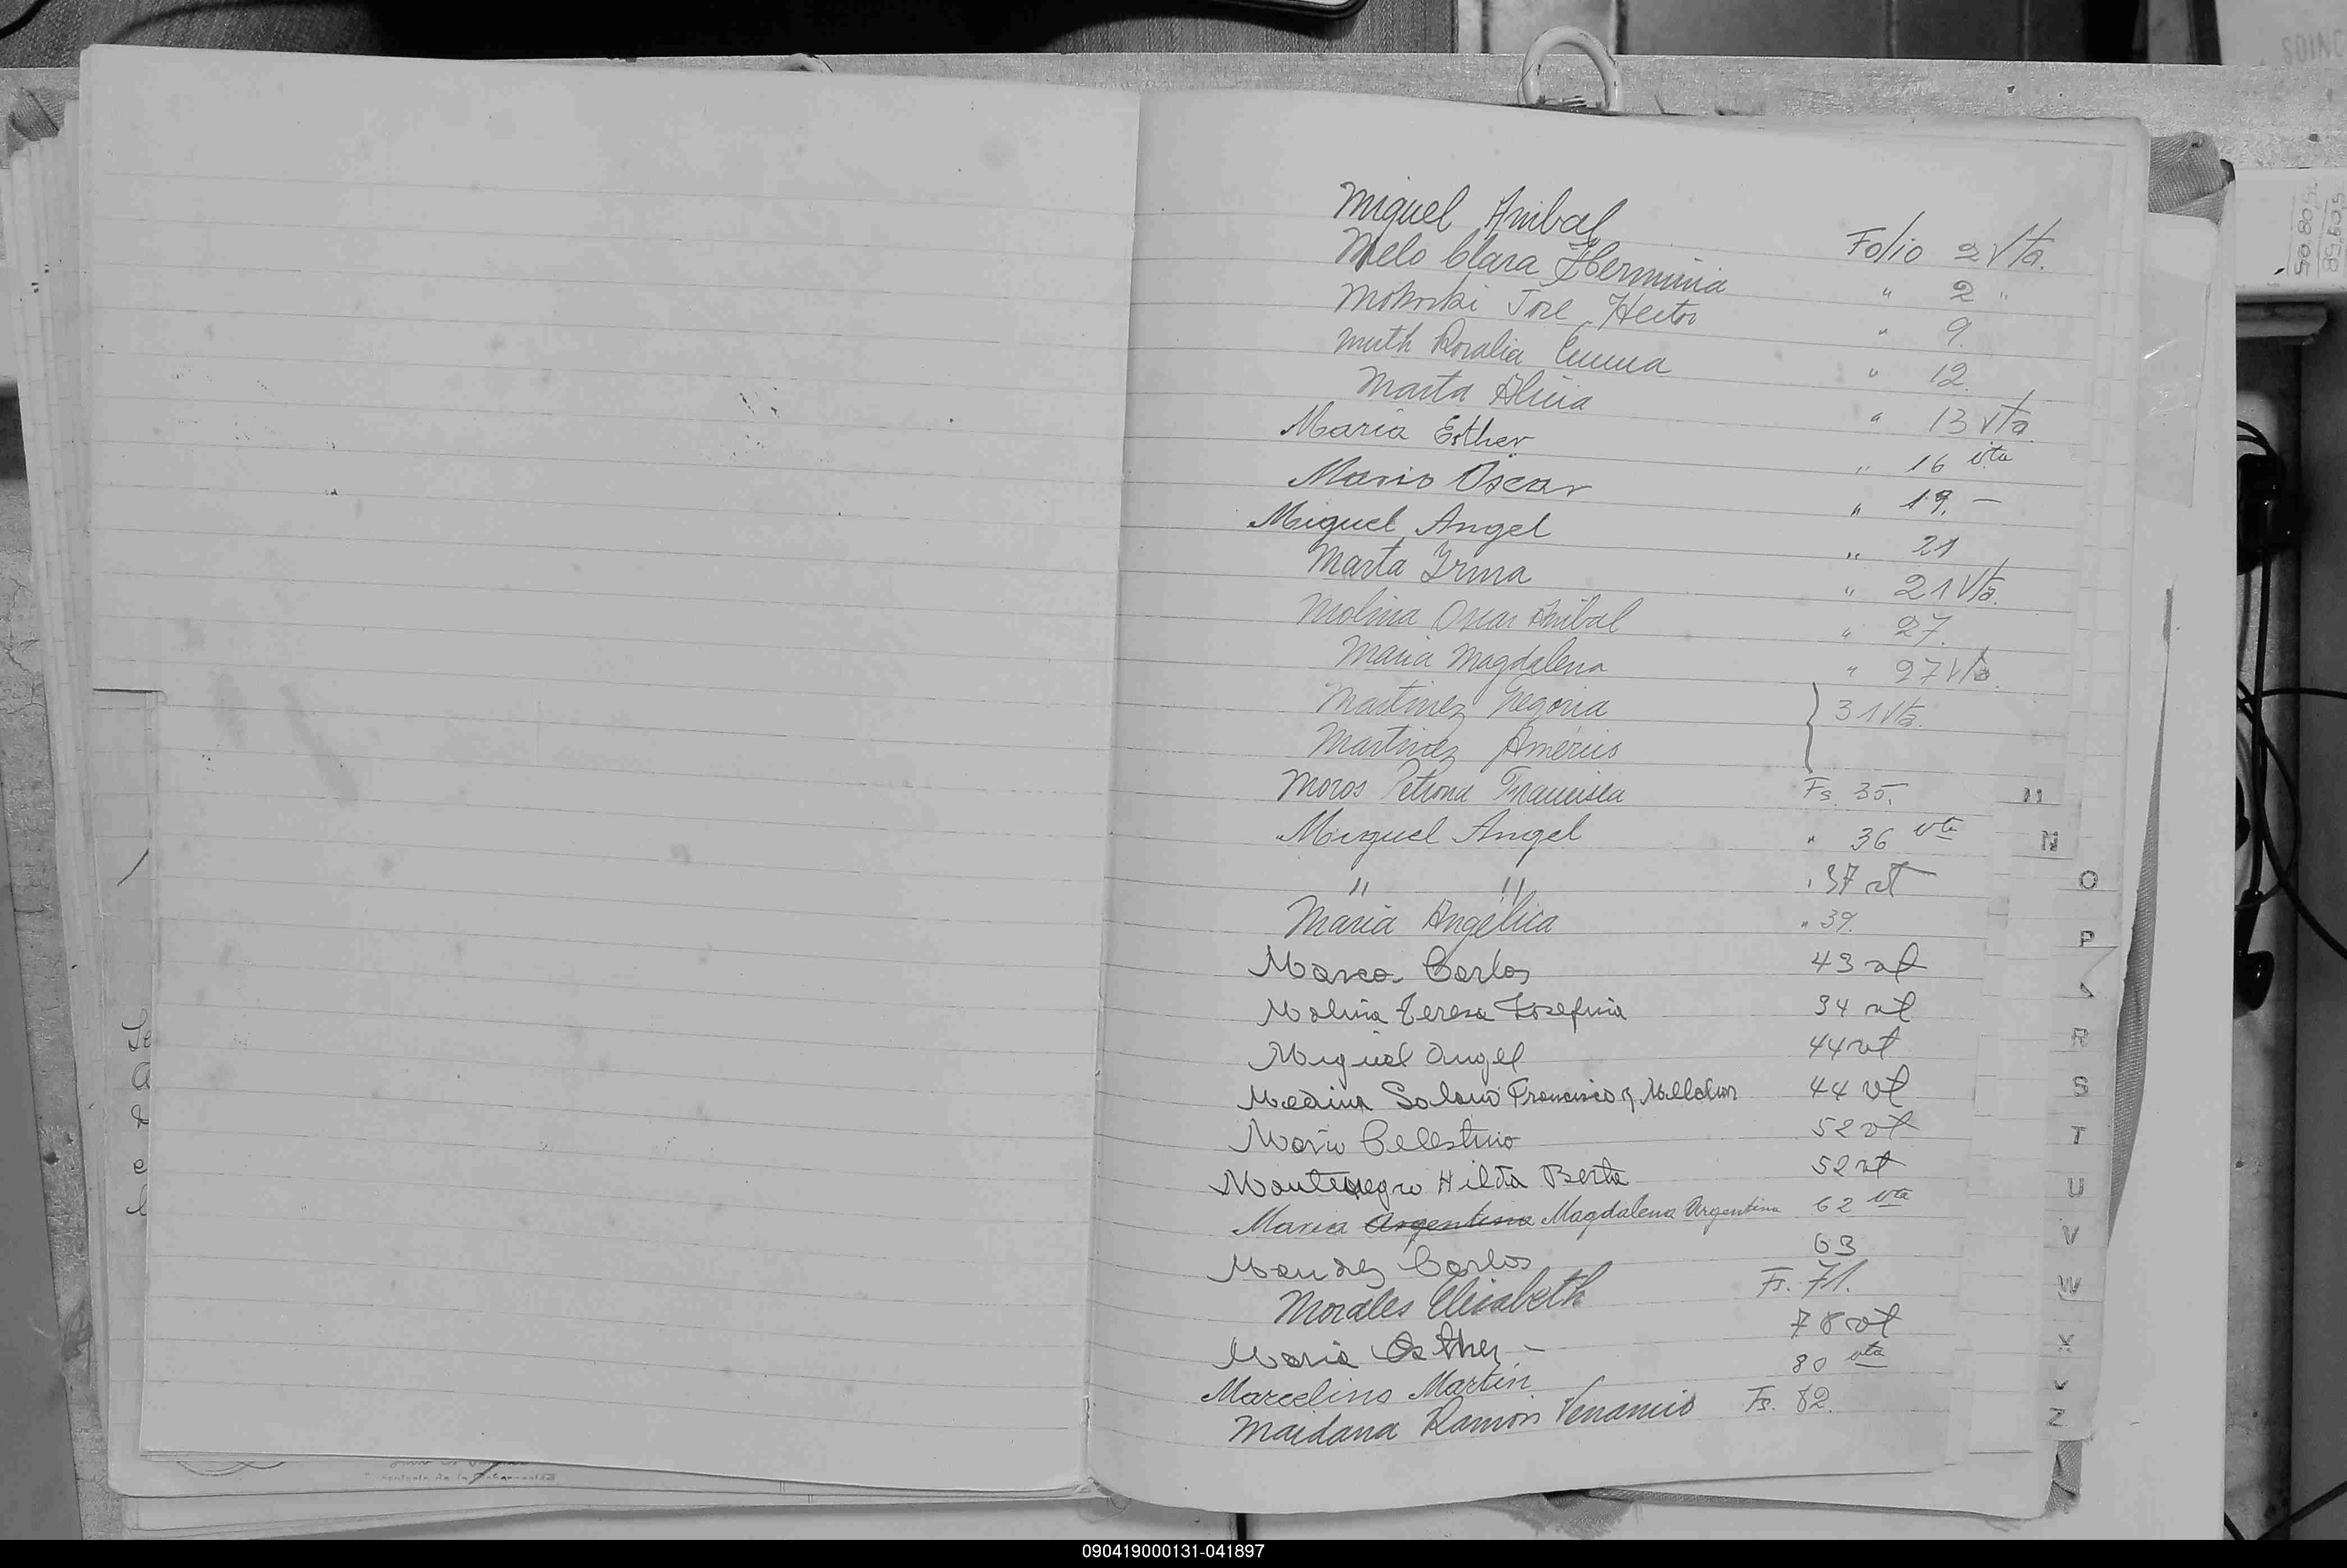 Miguel Anibal Folio 2 Vta.
Melo Clara Herminia " 2 "
José Hector " 9.
Muth Rosalia Emma " 12.
Marta Alicia " 13 Vta.
Maria Esther " 16 vta
Mario Oscar " 19. -
Miguel Angel " 21
Marta Irma " 21 Vta.
Molina Oscar Anibal " 27.
Maria Magdalena " 27 Vta.
Martinez Gregoria } 31 Vta.
Martinez Américo
Moros Petrona Francisca Fs. 35.
Miguel Angel " 36 vta
" " " 37 vt
Maria Angélica " 39.
Carlos 43 vt
Molina Teresa Josefina 34 vt
Miguel Angel 44 vt
Medina Solano Francisco y 44 vt
Mario Celestino 52 vt
Montenegro Hilda Berta 52 vt
Maria Argentina Magdalena Argentina 62 vta
Mendez Carlos 63
Morales Elisabeth Fs. 71.
Maria Esther - 78 vt
Marcelino Martin 80 vta
Maidana Ramón Venancio Fs. 82.
M
N
O
P
R
S
T
U
V
W
X
Z
090419000131-041897